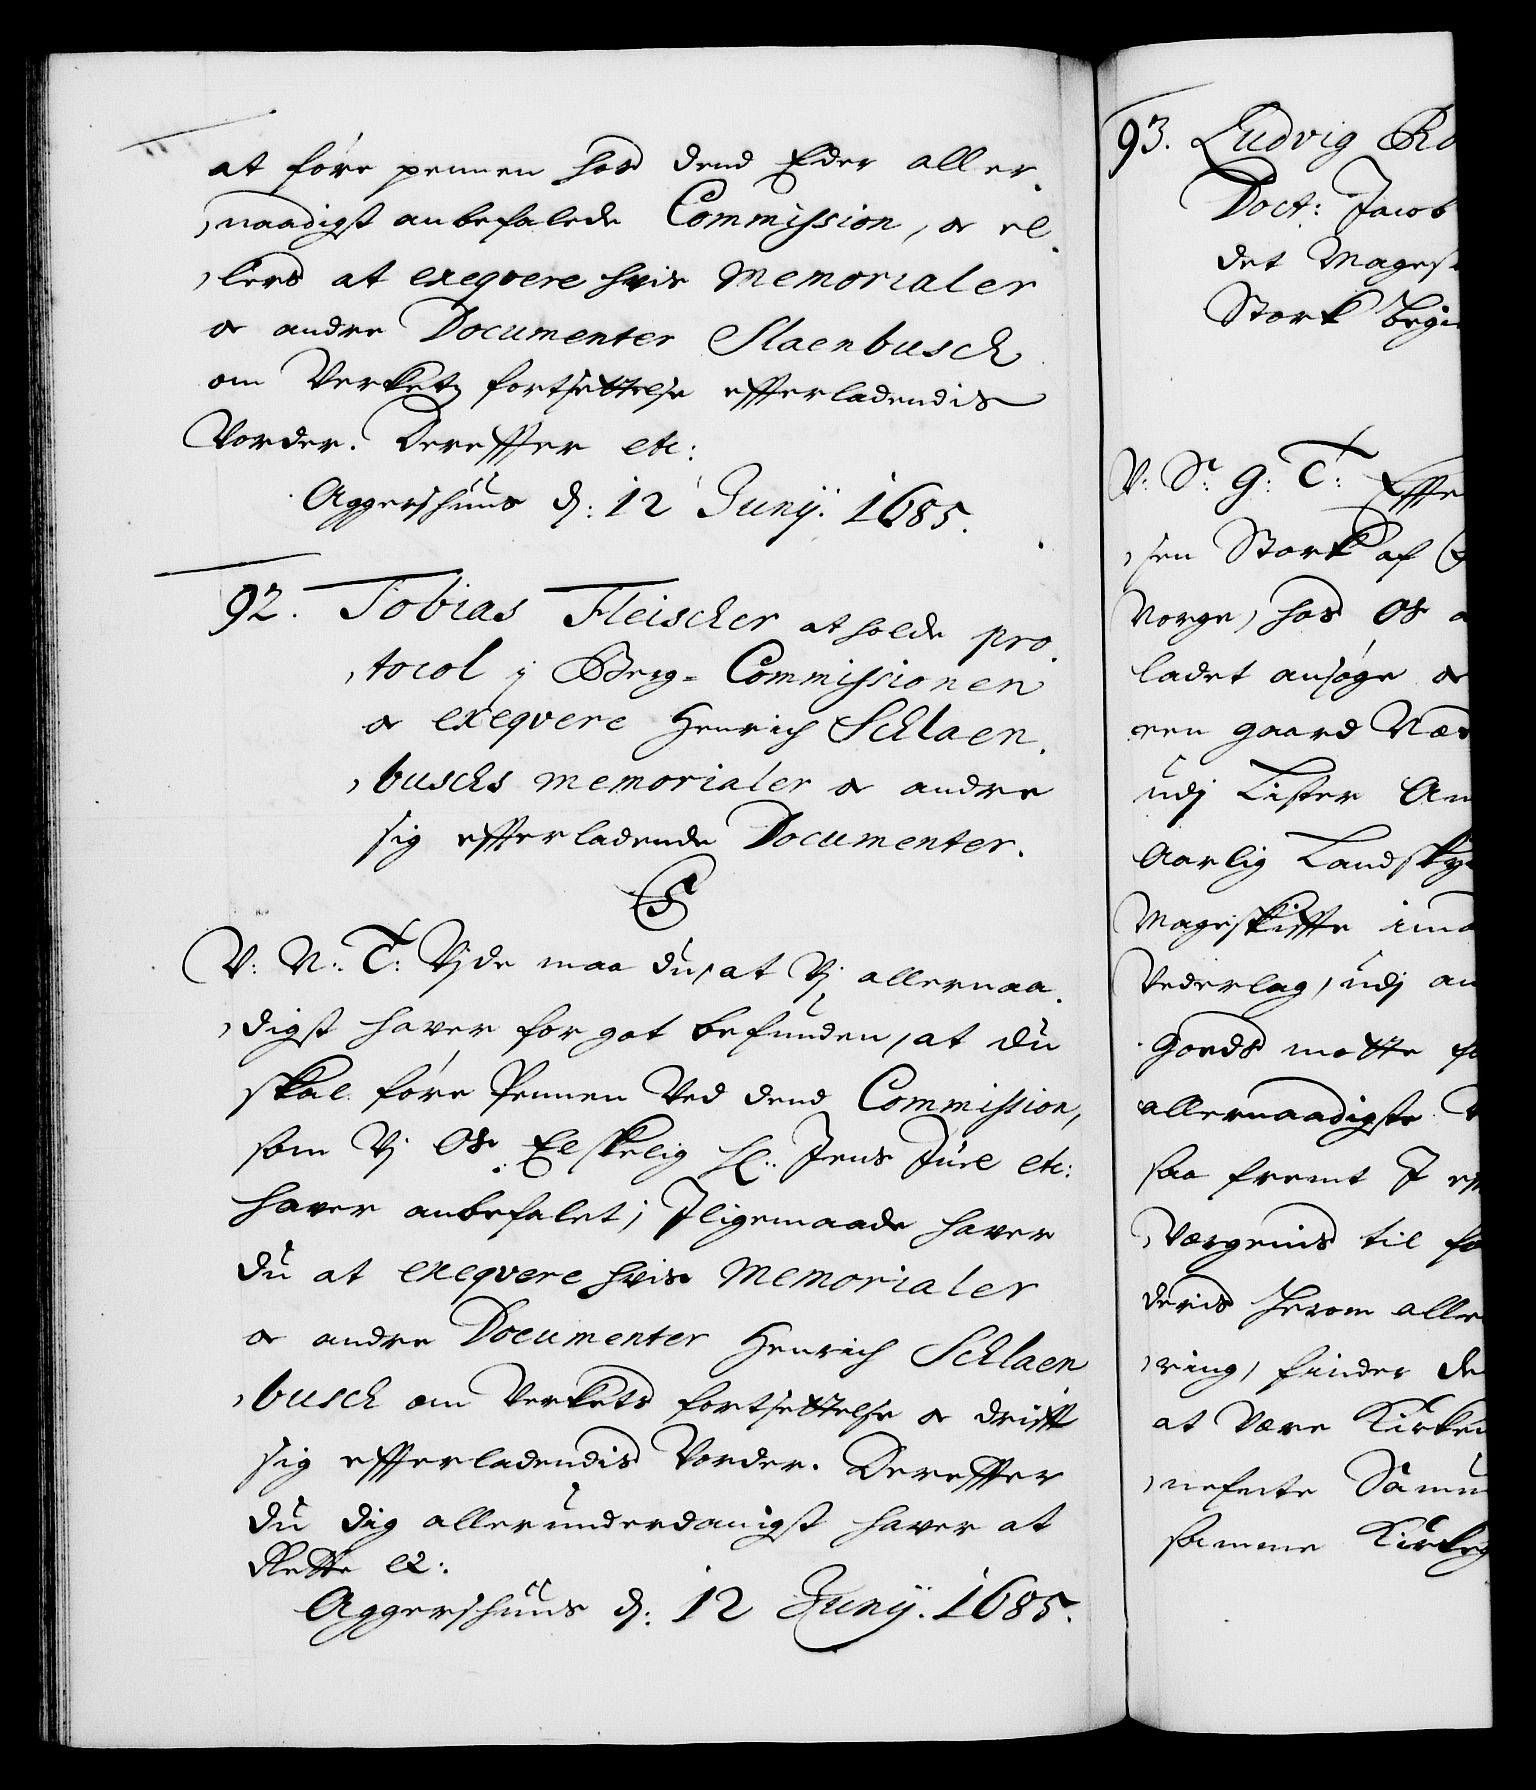 at före pennen hos dend Eder aller,
,naadigst anbefalede Commission, oc el,
,lers at exeqvere hvis Memorialer
oc andre Documenter Slaenbusch
om Verketz fortsettelse efferladendis
Vorder. Dereffter etc:
Aggershuus d: 12 Junij. 1685.
92. Tobias Fleischer at holde pro,
,tocol i Berg- Commissionen
oc exeqvere Henrich Schlaen,
,buschs memorialer oc andre
sig efferladende Documenter.
C5
V: N: T: Vide maa du, at Vj allernaa,
,digst haver for got befunden, at du
skal före Pennen Ved dend Commission,
som Vj Os Elskelig Hr: Jens Juel etc:
haver anbefalet; Jligemaade haver
du at exeqvere hvis Memorialer
oc andre Documenter Henrich Schlaen
,busch om Verkets fortsettelse oc drifft
sig efferladendis Vorder. Dereffter
du dig allerunderdanigst haver at
Rette etc:
Aggershuus d: 12 Junij. 1685.
93. Ludvig Ro
Doct: Jacob
det Magesk
Stork begie
V: Sr. G: T: Effte
,sen Stork af
Norge, hos Os a
ladet ansöge oc
een gaard Næs
udj Lister Am
Aarlig Landsky
Mageskiffte imo
Vederlag, udj an
Gords motte fo
allernaadigste V
saa fremt J
,Værgeris til fo
deris herom alle
,ring, finder de
at Være Kirken
,nefnte Samu
samme Kirkeg